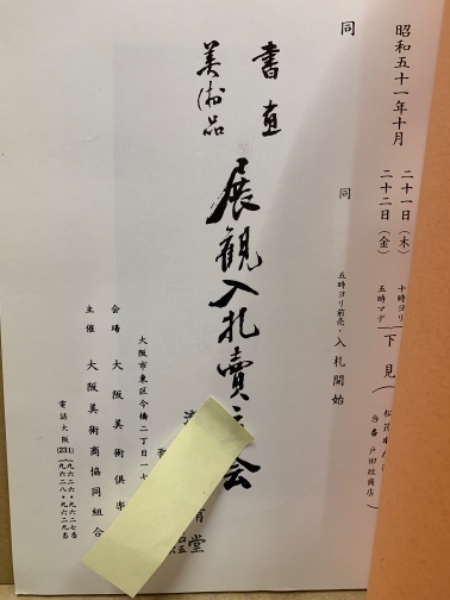 昭和五十一年十月
二十一日(木)
二十二日(金)
十時ヨリ
五時マデ
下見
戸田政商店
同
同
五時ヨリ前売・入札開始
書画
美術品
展観入札賣立会
堂
大阪市東区今橋二丁目一七
会場 大阪美術倶楽
主催 大阪美術商協同組合
電話大阪(231)(九六二六・九六二七番
九六二八・九六二九番